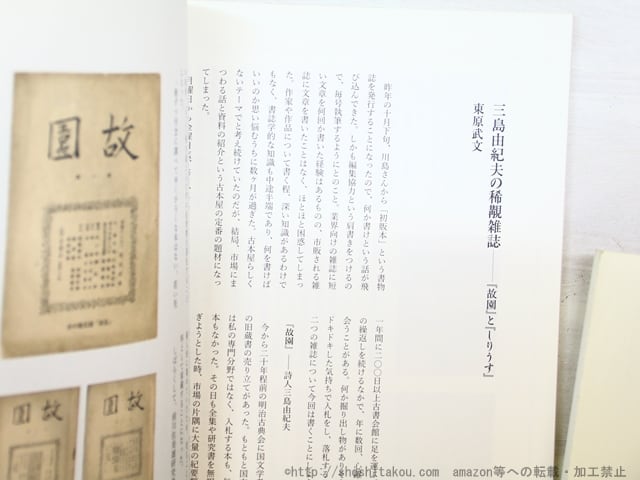 三島由紀夫の稀覯雑誌――『故園』と『しりうす』
東原武文
昨年の十月下旬、川島さんから「初版本」という書物
誌を発行することになったので、何か書けという話が飛
び込んできた。しかも編集協力という肩書きをつけるの
で、毎号執筆するようにとのこと。業界向けの雑誌に短
い文章を何回か書いた経験はあるものの、市販される雑
誌に文章を書いたことはなく、ほとほと困惑してしまっ
た。作家や作品について書く程、深い知識があるわけで
もなく、書誌学的な知識も中途半端であり、何を書けば
いいのか思い悩むうちに数ヶ月が過ぎた。古本屋らしく
ないテーマでと考え続けていたのだが、結局、市場にま
つわる話と資料の紹介という古本屋の定番の題材になっ
てしまった。
一年間に二〇〇日以上古書会館に足を運
の繰返しを続けるなかで、年に数回、心
会うことがある。何か掘り出し物があり
ドキドキした気持ちで入札をし、落札する
二つの雑誌について今回は書くことに
『故園』――詩人三島由紀夫
今から二十年程前の明治古典会に国文学
の旧蔵書の売り立てがあった。もともと国
は私の専門分野ではなく、入札する本も、
本もなかった。その日も全集や研究書を無
ぎようとした時、市場の片隅に大量の紀要
故園
故園
故園
©http://shoshitakou.com amazon等への転載・加工禁止